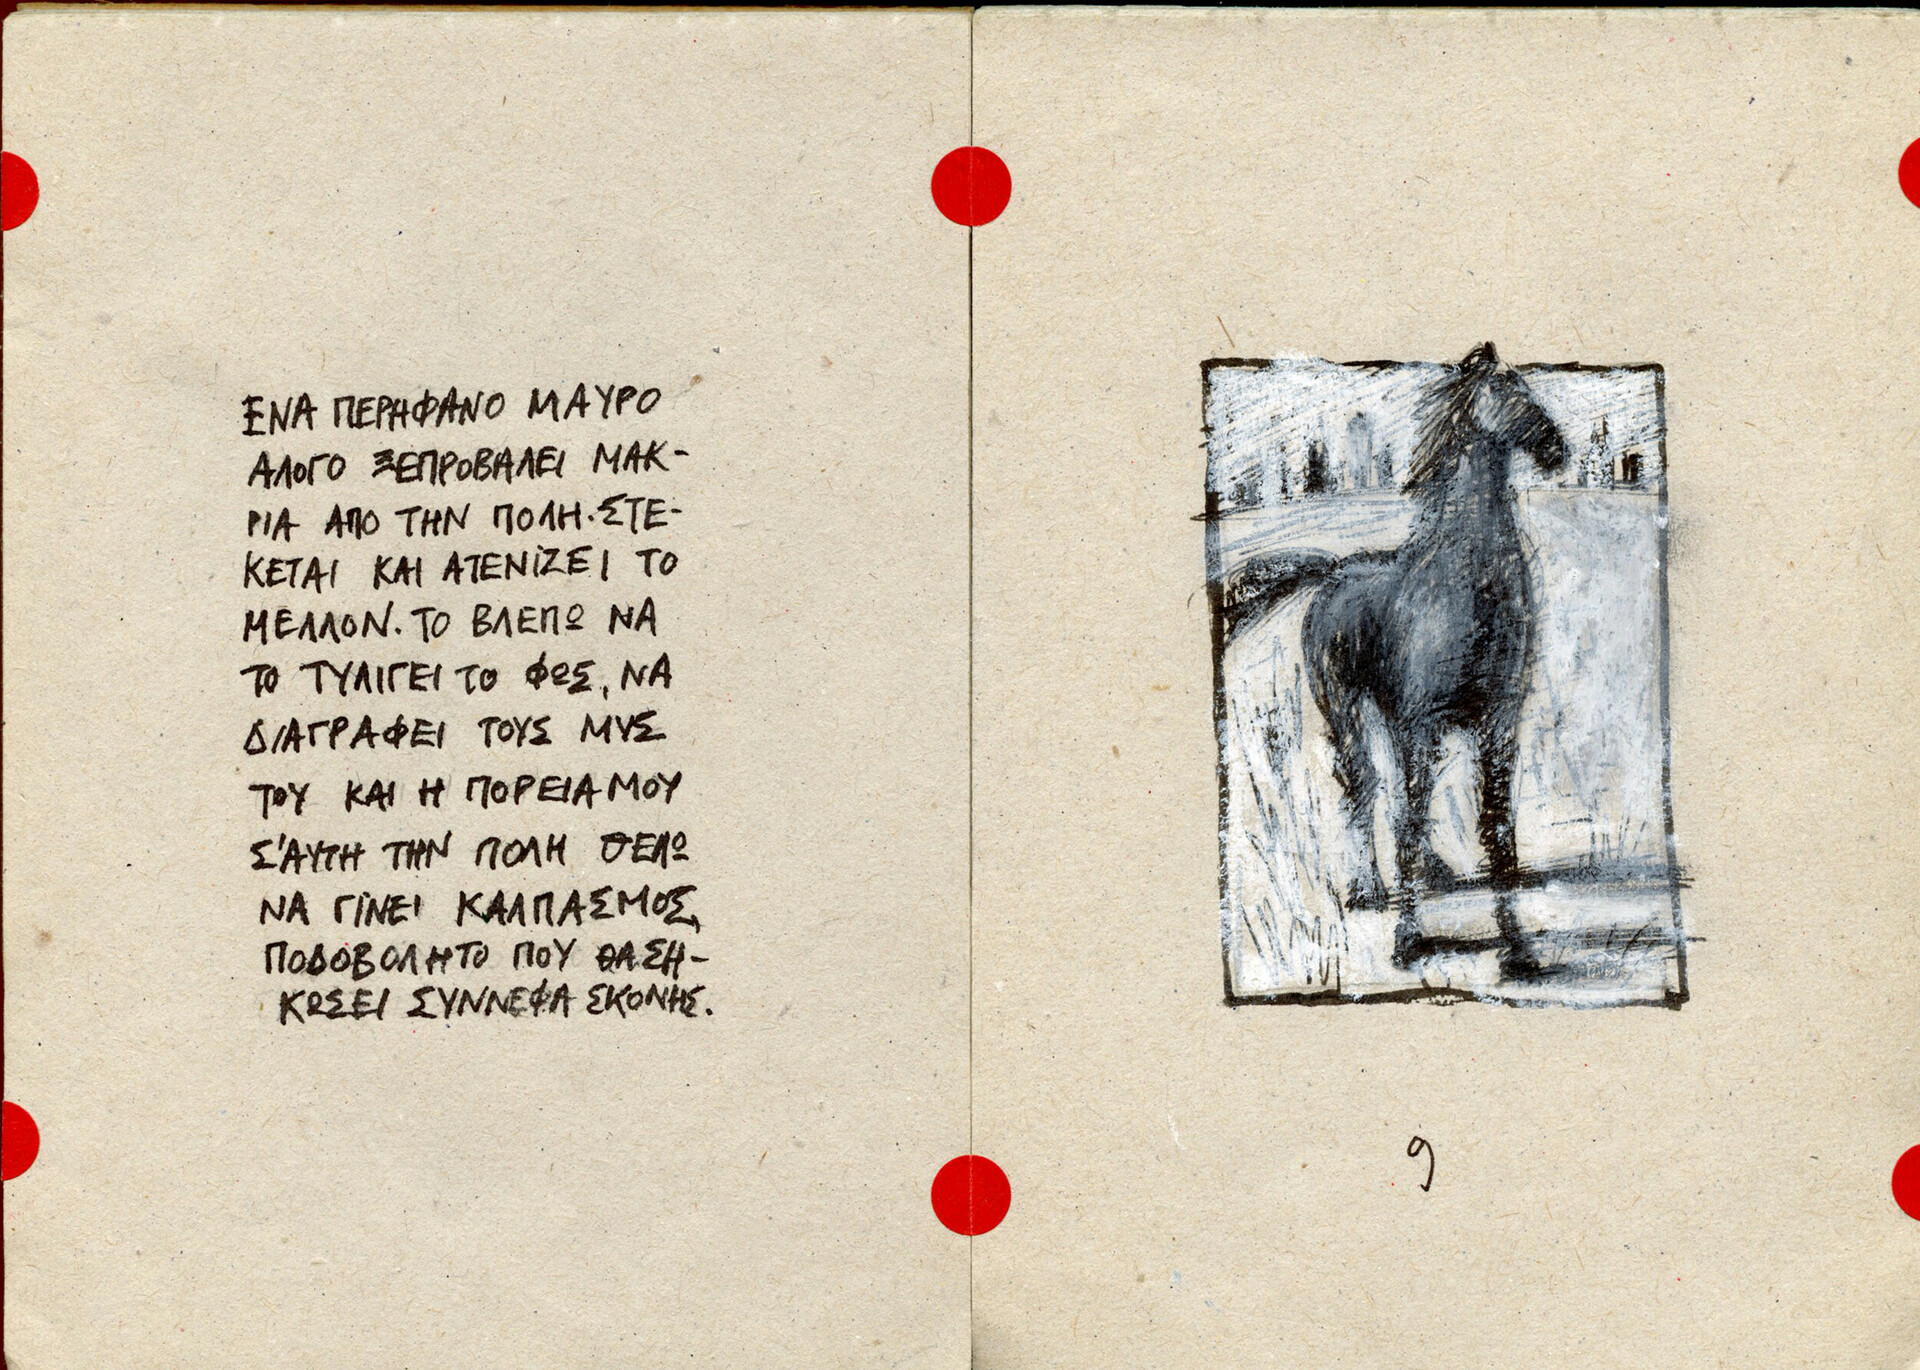 ΕΝΑ ΠΕΡΗΦΑΝΟ ΜΑΥΡΟ
ΑΛΟΓΟ ΞΕΠΡΟΒΑΛΕΙ ΜΑΚ-
ΡΙΑ ΑΠΟ ΤΗΝ ΠΟΛΗ. ΣΤΕ-
ΚΕΤΑΙ ΚΑΙ ΑΤΕΝΙΖΕΙ ΤΟ
ΜΕΛΛΟΝ. ΤΟ ΒΛΕΠΩ ΝΑ
ΤΟ ΤΥΛΙΓΕΙ ΤΟ ΦΩΣ, ΝΑ
ΔΙΑΓΡΑΦΕΙ ΤΟΥΣ ΜΥΣ
ΤΟΥ ΚΑΙ Η ΠΟΡΕΙΑ ΜΟΥ
Σ'ΑΥΤΗ ΤΗΝ ΠΟΛΗ ΘΕΛΩ
ΝΑ ΓΙΝΕΙ ΚΑΛΠΑΣΜΟΣ,
ΠΟΔΟΒΟΛΗΤΟ ΠΟΥ ΘΑ ΣΗ-
ΚΩΣΕΙ ΣΥΝΝΕΦΑ ΣΚΟΝΗΣ.
9